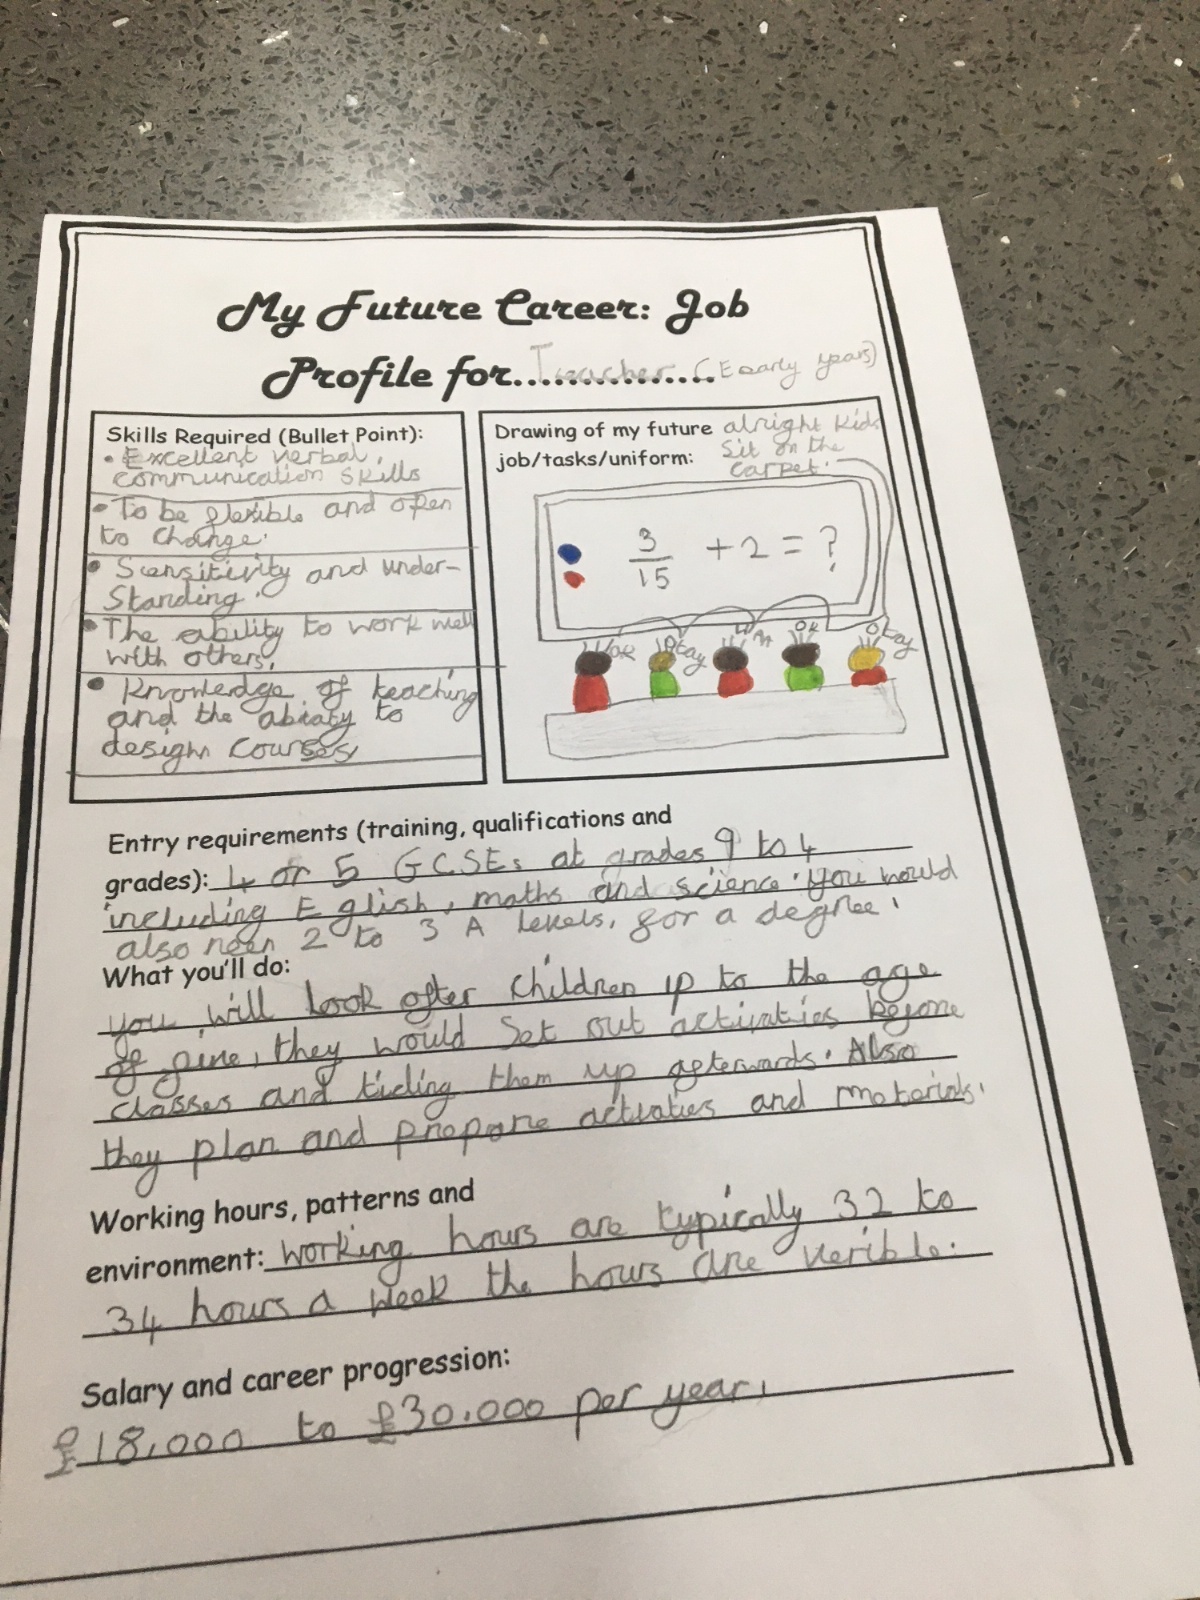 My Future Career: Job
Profile for................ Teacher (Early years)
Skills Required (Bullet Point):
• Excellent verbal,
communication skills
• To be flexible and open
to change.
• Sensitivity and under-
standing.
• The ability to work well
with others.
• Knowledge of teaching
and the abiraty to
design courses
Drawing of my future
job/tasks/uniform:
alright kids
Sit on the
carpet.
3/15 + 2 = ?
OK
Okay
OK
Okay
Entry requirements (training, qualifications and
grades): 4 or 5 GCSEs at grades 9 to 4
including Eglish, maths and science. You would
also neen 2 to 3 A levels, for a degree.
What you'll do:
you will look after children up to the age
of five, they would set out activaties before
classes and tiding them up afterwards. Also
they plan and prepare activaties and materials.
Working hours, patterns and
environment: working hours are typically 32 to
34 hours a week the hours are verible.
Salary and career progression:
£18,000 to £30,000 per year.